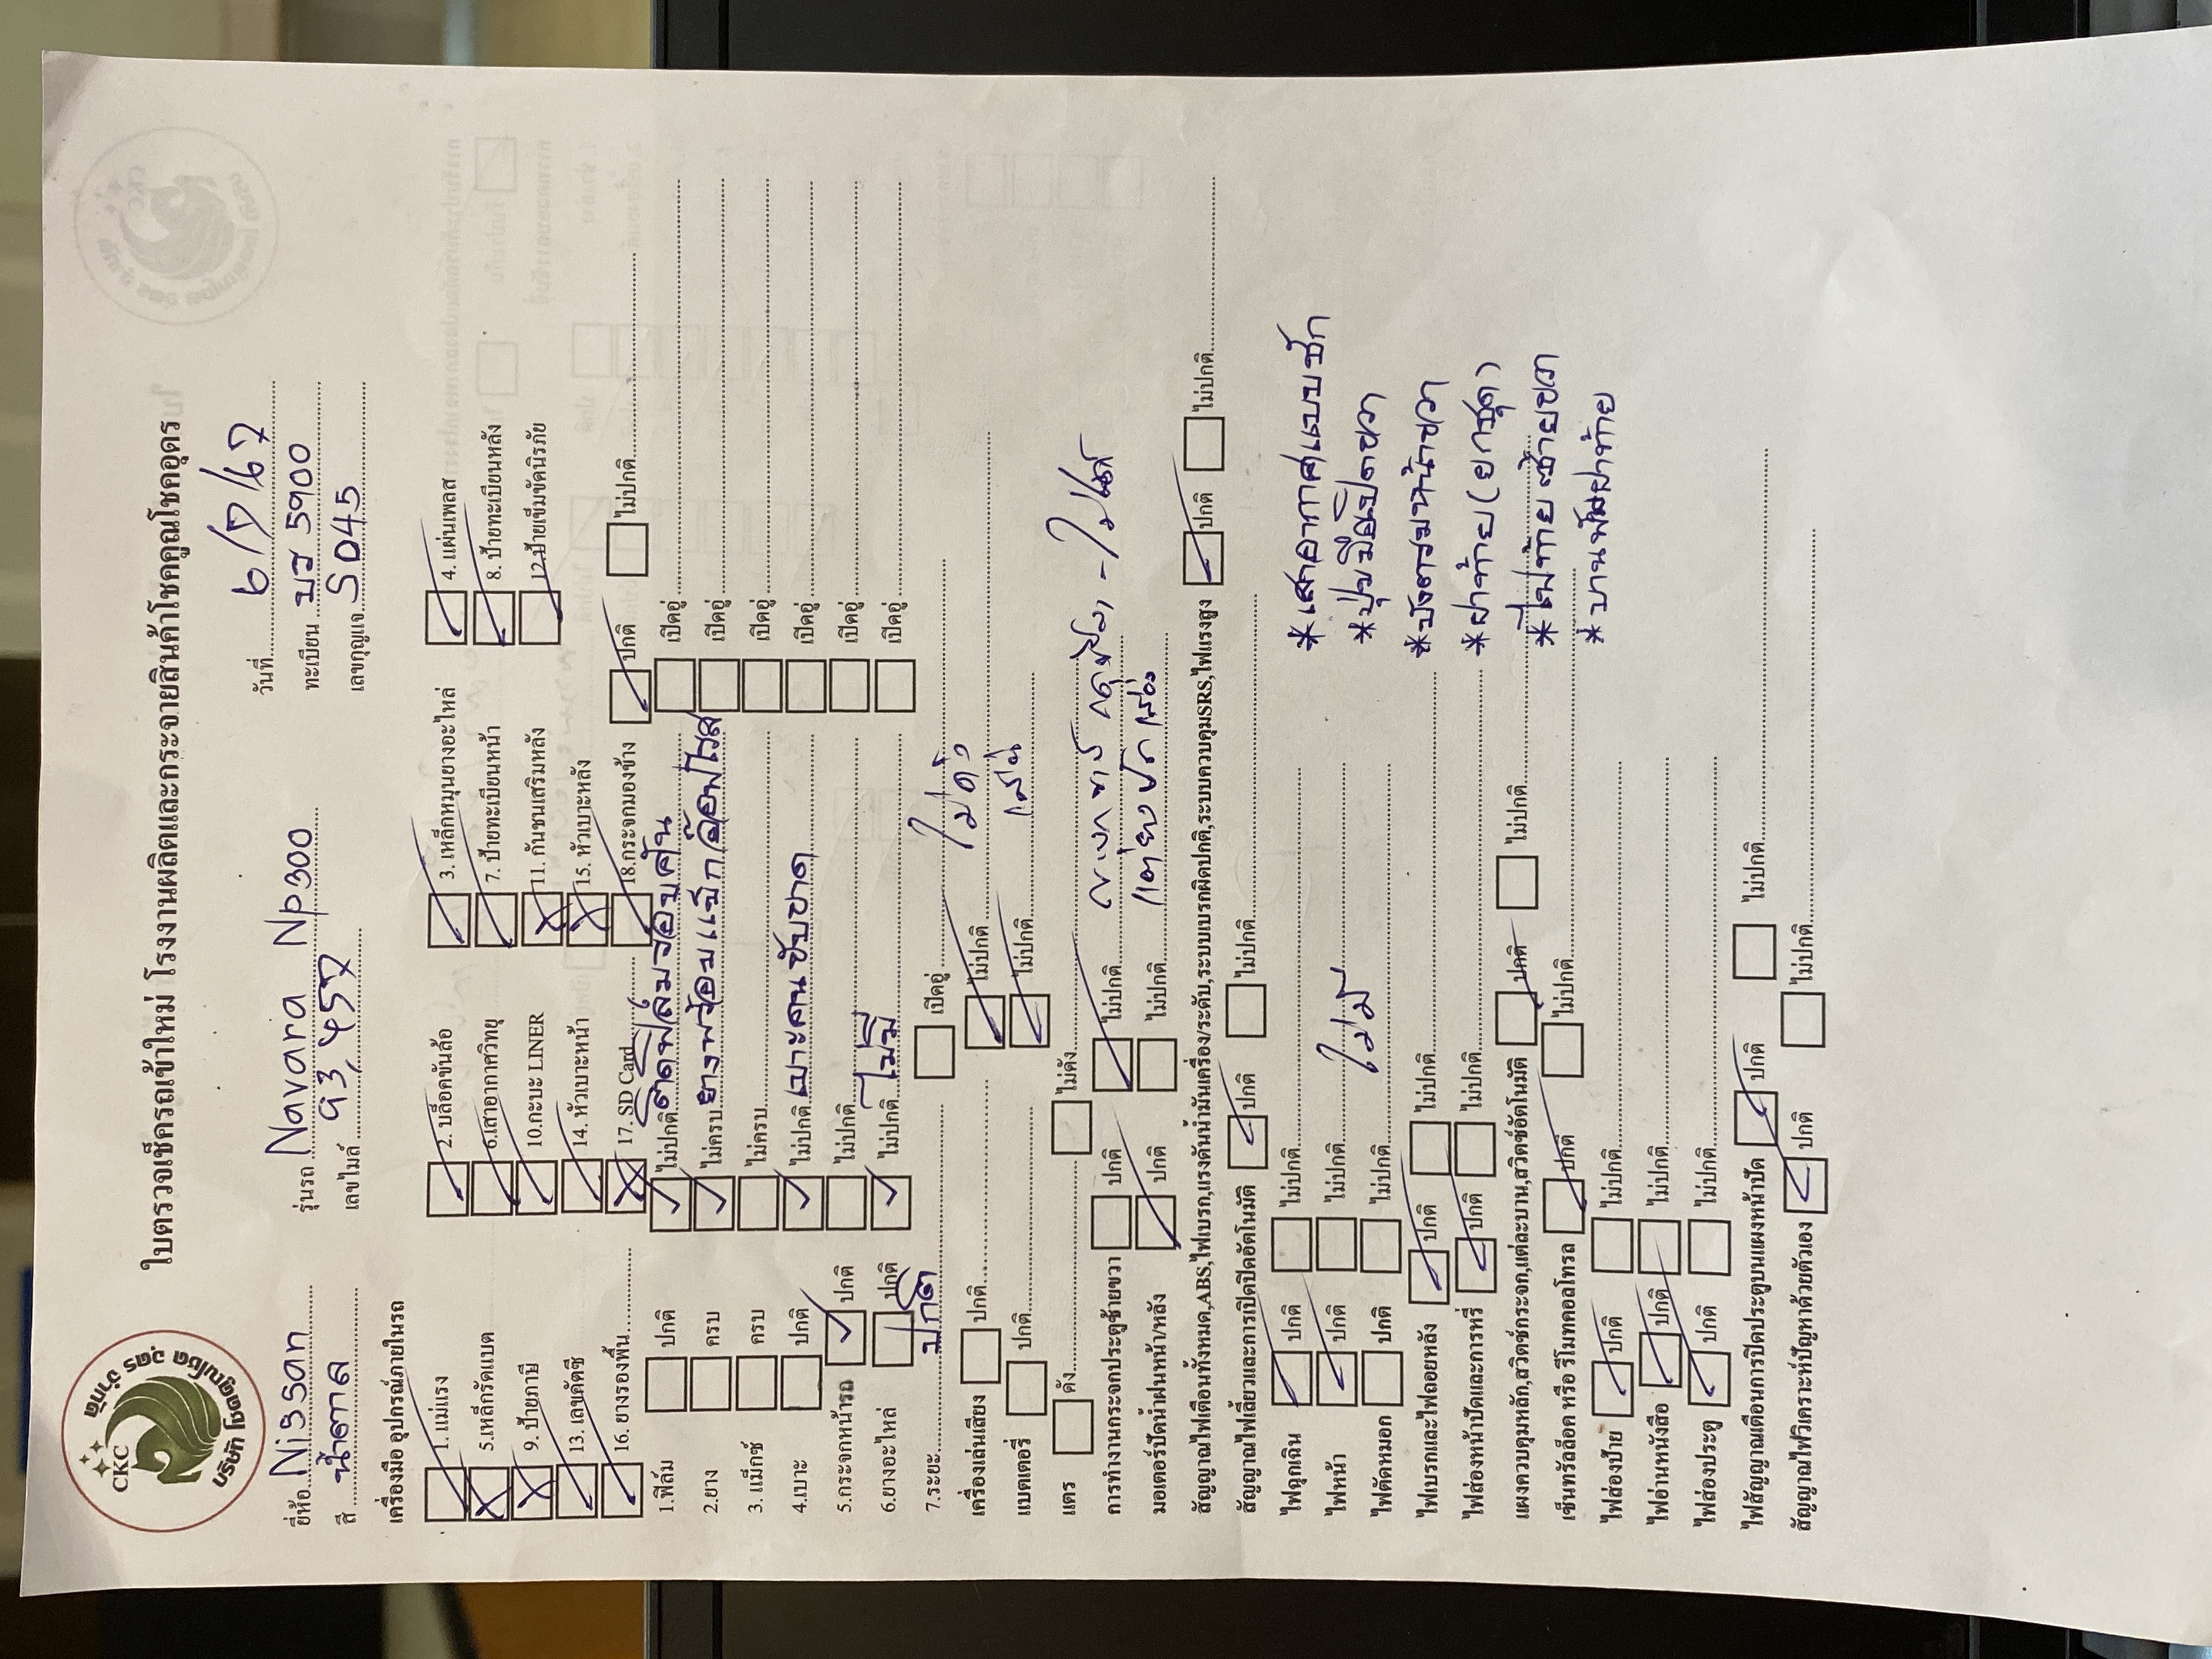 CKC
บริษัท โชคคูณโชค อุดร จำกัด
ใบตรวจเช็ครถเข้าใหม่ โรงงานผลิตและกระจายสินค้าโชคคูณโชคอุดร
วันที่ 6/7/67
ยี่ห้อ Nissan รุ่นรถ Navara Np300 ทะเบียน บว 5900
สี น้ำตาล เลขไมล์ 93,457 เลขกุญแจ S045
เครื่องมือ อุปกรณ์ภายในรถ
1. แม่แรง 2. บล็อคขันล้อ 3. เหล็กหมุนยางอะไหล่ 4. แผ่นเพลส
5.เหล็กรัดแบต 6.เสาอากาศวิทยุ 7. ป้ายทะเบียนหน้า 8. ป้ายทะเบียนหลัง
9. ป้ายภาษี 10.กะบะ LINER 11. กันชนเสริมหลัง 12.ป้ายเข็มขัดนิรภัย
13. เลขคัตซี 14. หัวเบาะหน้า 15. หัวเบาะหลัง
16. ยางรองพื้น 17. SD Card 18.กระจกมองข้าง ปกติ ไม่ปกติ
1.ฟิล์ม ปกติ ไม่ปกติ ติดฟิล์มรอบคัน เบิคอู่
2.ยาง ครบ ไม่ครบ ยางพร้อมแม็กอ๊อฟโรส เบิคอู่
3. แม็กซ์ ครบ ไม่ครบ เบิคอู่
4.เบาะ ปกติ ไม่ปกติ เบาะคนขับขาด เบิคอู่
5.กระจกหน้ารถ ปกติ ไม่ปกติ เบิคอู่
6.ยางอะไหล่ ปกติ ไม่ปกติ ไม่มี เบิคอู่
7.ระยะ ปกติ เบิคอู่
เครื่องเล่นเสียง ปกติ ไม่ปกติ
แบตเตอรี่ ปกติ ไม่ปกติ
แตร ดัง ไม่ดัง
การทำงานกระจกประตูซ้ายขวา ปกติ ไม่ปกติ
มอเตอร์ปัดน้ำฝนหน้า/หลัง ปกติ ไม่ปกติ
สัญญาณไฟเตือนทั้งหมด,ABS,ไฟเบรก,แรงดันน้ำมันเครื่อง/ระดับ,ระบบเบรกผิดปกติ,ระบบควบคุมSRS,ไฟแรงสูง ปกติ ไม่ปกติ
สัญญาณไฟเลี้ยวและการเปิดปิดอัตโนมัติ ปกติ ไม่ปกติ
ไฟฉุกเฉิน ปกติ ไม่ปกติ
*เสาอากาศแบบชัก
ไฟหน้า ปกติ ไม่ปกติ
ไฟตัดหมอก ปกติ ไม่ปกติ ไม่มี
ไฟเบรกและไฟถอยหลัง ปกติ ไม่ปกติ
ไฟส่องหน้าปัดและการหรี่ ปกติ ไม่ปกติ
*ฝาท้าย(ยกชุด)
แผงควบคุมหลัก,สวิตช์กระจก,แต่ละบาน,สวิตช์อัตโนมัติ ปกติ ไม่ปกติ
เซ็นทรัลล็อค หรือ รีโมทคอลโทรล ปกติ ไม่ปกติ
ไฟส่องป้าย ปกติ ไม่ปกติ
ไฟอ่านหนังสือ ปกติ ไม่ปกติ
ไฟส่องประตู ปกติ ไม่ปกติ
ไฟสัญญาณเตือนการปิดประตูบนแผงหน้าปัด ปกติ ไม่ปกติ
สัญญาณไฟวิเคราะห์ปัญหาด้วยตัวเอง ปกติ ไม่ปกติ